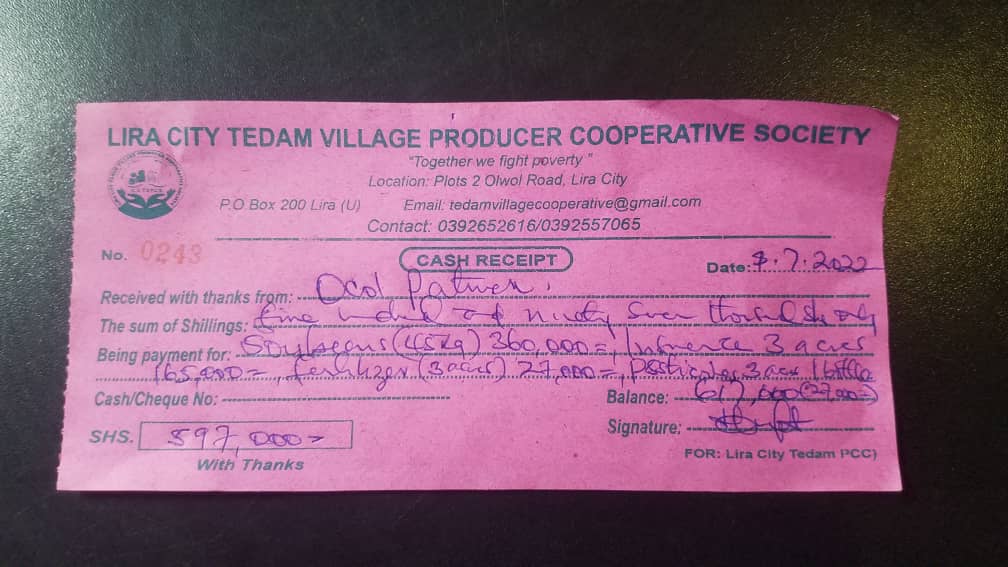 LIRA CITY TEDAM VILLAGE PRODUCER COOPERATIVE SOCIETY
"Together we fight poverty"
Location: Plots 2 Olwol Road, Lira City
P.O.Box 200 Lira (U) Email: tedamvillagecooperative@gmail.com
Contact: 0392652616/0392557065
No. 0243 CASH RECEIPT Date: 7.2022
Received with thanks from: Ocol
The sum of Shillings: five hundred and ninety seven thousand shs only
Being payment for: Soybeans (45kg) 360,000=, Insurance 3 acres
165,000=, fertilizer (3 acres) 27,000=, 3 acres 1 bottle
Cash/Cheque No: Balance:
SHS. 597,000= Signature:
With Thanks FOR: Lira City Tedam PCC)